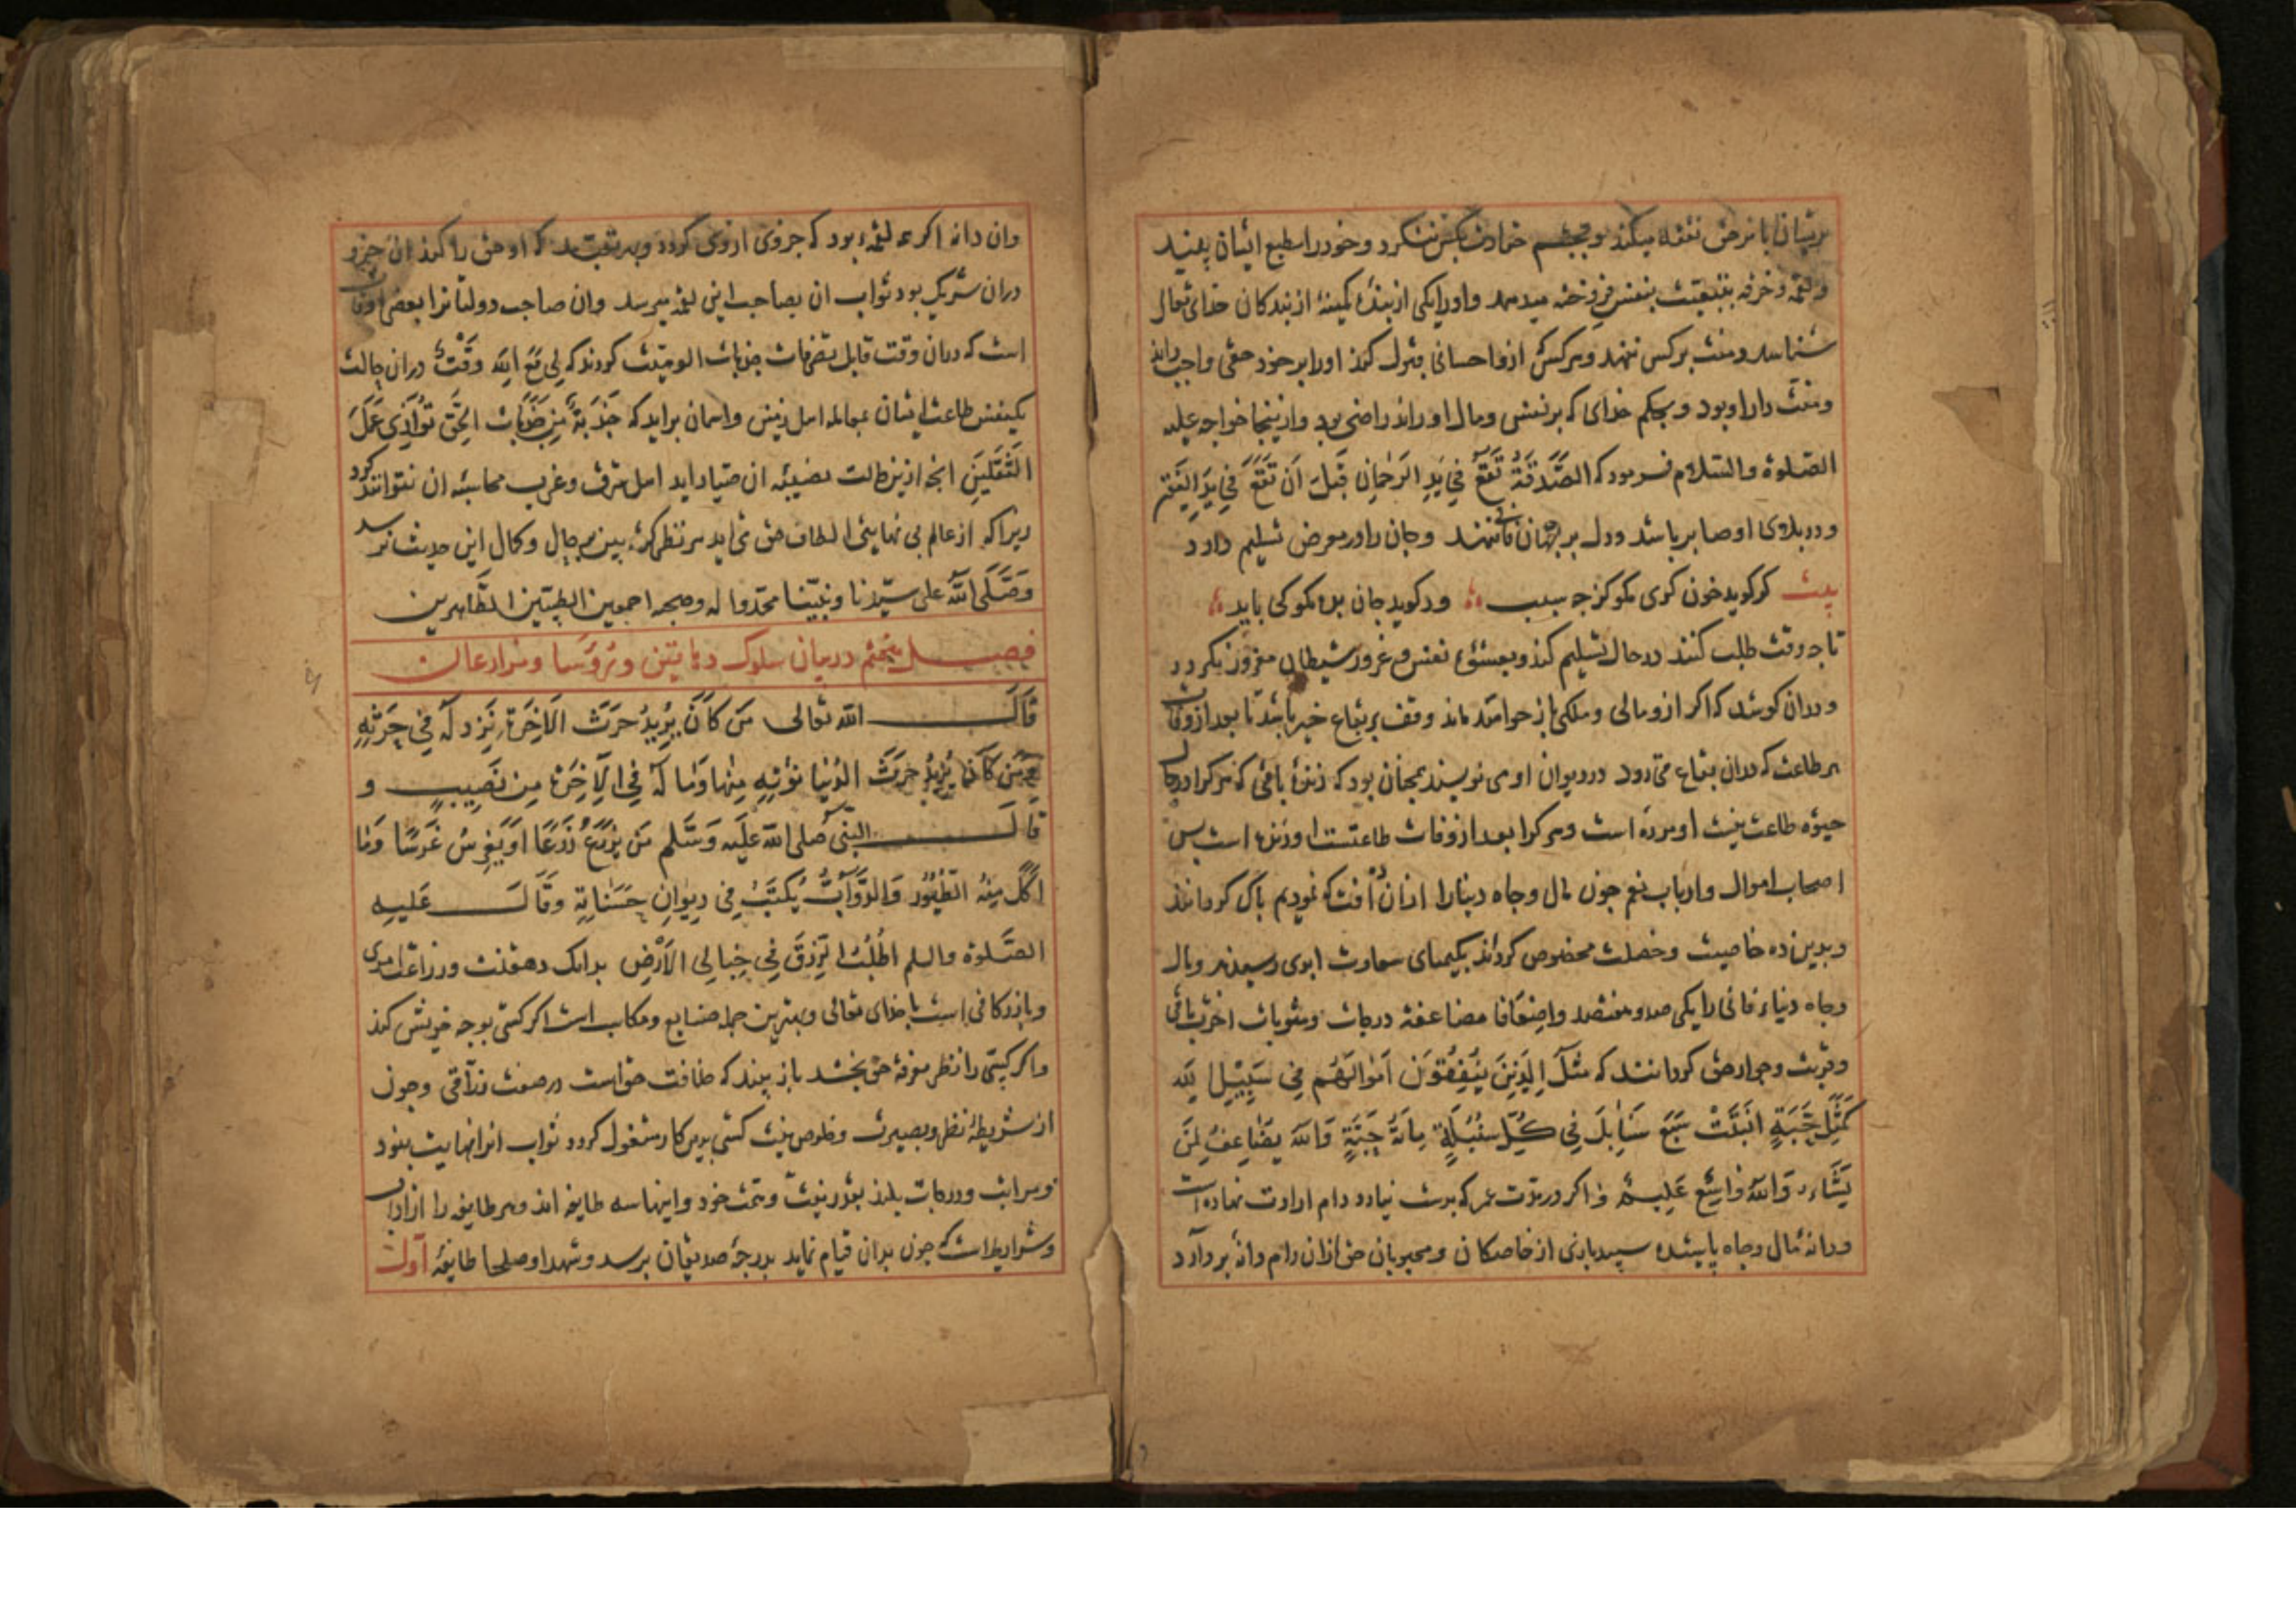 بریشان بامر حق نفقه میکند و بچشم حقارت بکس ننکرد و خود را بطبع ایشان نبیند
و لقمه و خرقه بتبعیت بنفس فروخته میدهد و او را یکی از بندهٔ کمینهٔ از بندکان خدای تعالی
شناسد و منت برکس ننهد و هرکس ازو احسانی قبول کند او را بر خود حقی واجب داند
و منت دار او بود و بحکم خدای که بر نفس و مال او راند راضی بود و ازینجا خواجه علیه
الصلوة والسلام فرمود که الصَّدَقَةُ تَقَعُ فِي يَدِ الرَحمانِ قَبلَ اَن تَقَعَ فِي يَدِ الفَقیر
و در بلاوی او صابر باشد و دل بر جهان فانی ننهد و جان را در معرض تسلیم دارد
بیت کر کوید خون کری مکو کز چه سبب ور کوید جان بده مکو کی باید
تا چه وقت طلب کنند در حال تسلیم کند و بعشوهٔ نفس و غرور شیطان مغرور نکردد
و دران کوشد که اکر ازو مالی و ملکی باز خواهد ماند وقف بر بقاع خیر باشد تا بعد از وفات
هر طاعت که دران بقاع می رود در دیوان او می نویسند همچنان بود که زندهٔ باقی که هر کرا در حال
حیوة طاعت نیست او مرده است و هر کرا بعد از وفات طاعتست او زنده است پس
اصحاب اموال و ارباب نعم چون مال و جاه دنیا را ازان آفت که نمودیم پاک کردانند
و بدین ده خاصیت و خصلت مخصوص کردانند بکیمیای سعادت ابدی رسیدند و مال
و جاه دنیاء فانی را یکی صد و هفتصد و اضعافا مضاعفه درجات و مثوبات اخرت باقی
و قربت و جوار حق کردانند که مَثَلُ الَّذِينَ يُنْفِقُونَ اَمْوَالَهُم فِي سَبِيْلِ الله
كَمَثَلِ حَبَّةٍ اَنْبَتَتْ سَبْعَ سَنَابِلَ فِي كُلِّ سُنْبُلَةٍ مِائَةُ حَبَّةٍ وَالله يُضَاعِفُ لِمَنْ
يَشَاء وَاللهُ وَاسِعٌ عَلِيمٌ و اکر در مدت عمر که بدست نیارد دام ارادت نهاده است
و دانه مال و جاه پاشیده سپید بازی از خاصکان و محبوبان حق ازان دام دانهٔ بردارد
وان دانه اکر لقمه بود که جزوی ازوی کردد و بهر تعبد که او حق را کند ان جزو
دران شریک بود ثواب ان بصاحب این لقمه میرسد وان صاحب دولتانرا بعضی اوقات
است که دران وقت قابل تصرفات جذبات الوهیت کردند که لِي مَعَ اللهِ وَقْتٌ دران حالت
یکنفس طاعت ایشان بمعامله اهل زمین و اسمان براید که جَذْبَةٌ مِن جَذَبَاتِ الحَقِّ تُوَازِي عَمَلَ
الثَّقَلَینِ انچه ازین حالت نصیبه ان صیاد اید اهل شرق و غرب محاسبه ان نتوانند کرد
زیراکه از عالم بی نهایتی الطاف حق می اید هر نظر کوته بین بر جمال و کمال این حدیث نرسد
وَصَلَّى اللهُ على سَيّدنا ونَبيّنا محمّد واله وصحبه اجمعين الطيّبين الطَّاهرين
فصــل پنجم در بیان سلوک دهاقین و رؤسا و مزارعان
قَالَ الله تعالى مَن كَانَ يُرِيدُ حَرْثَ الآخِرَةِ نَزِد لَهُ فِي حَرْثِهِ
وَمَن كَانَ يُرِيدُ حَرثَ الدُنيا نؤتِهِ مِنها وَمَا لَهُ فِي الآخِرَة مِن نَصِيبٍ و
قالَ النبيّ صلى الله عَلَيه وَسَلم مَن يَزرَعُ زَرعًا اَو يَغرِسُ غَرسًا وَما
اَكَل مِنهُ الطُيُور وَالدَّوَابُّ يُكتَبُ فِي دِيوَانِ حَسَنَاتِهِ وقَالَ عَليه
الصَّلوة والسلم اُطلُبُوا الرِزقَ فِي خبَايَا الاَرضِ بدانک دهقنت و زراعت امری
و بازرکانی است با خدای تعالی و بهترین جمله صنایع و مکاسب است اکر کسی بوجه خویش کند
و اکر کسی را نظر معرفة حق بخشد باز بیند که خلافت حق است در صفت رزاقی و چون
از شریطهٔ نظر و بصیرت و خلوص نیت کسی بدین کار مشغول کردد ثواب انرا نهایت نبود
و مراتب و درجات بلند بقدر نیت و همت خود و اینها سه طایفه اند و هر طایفه را ازاداب
و شرایط است که چون بدان قیام نماید بدرجهٔ صدیقان برسد و شهدا و صلحا طایفهٔ اول